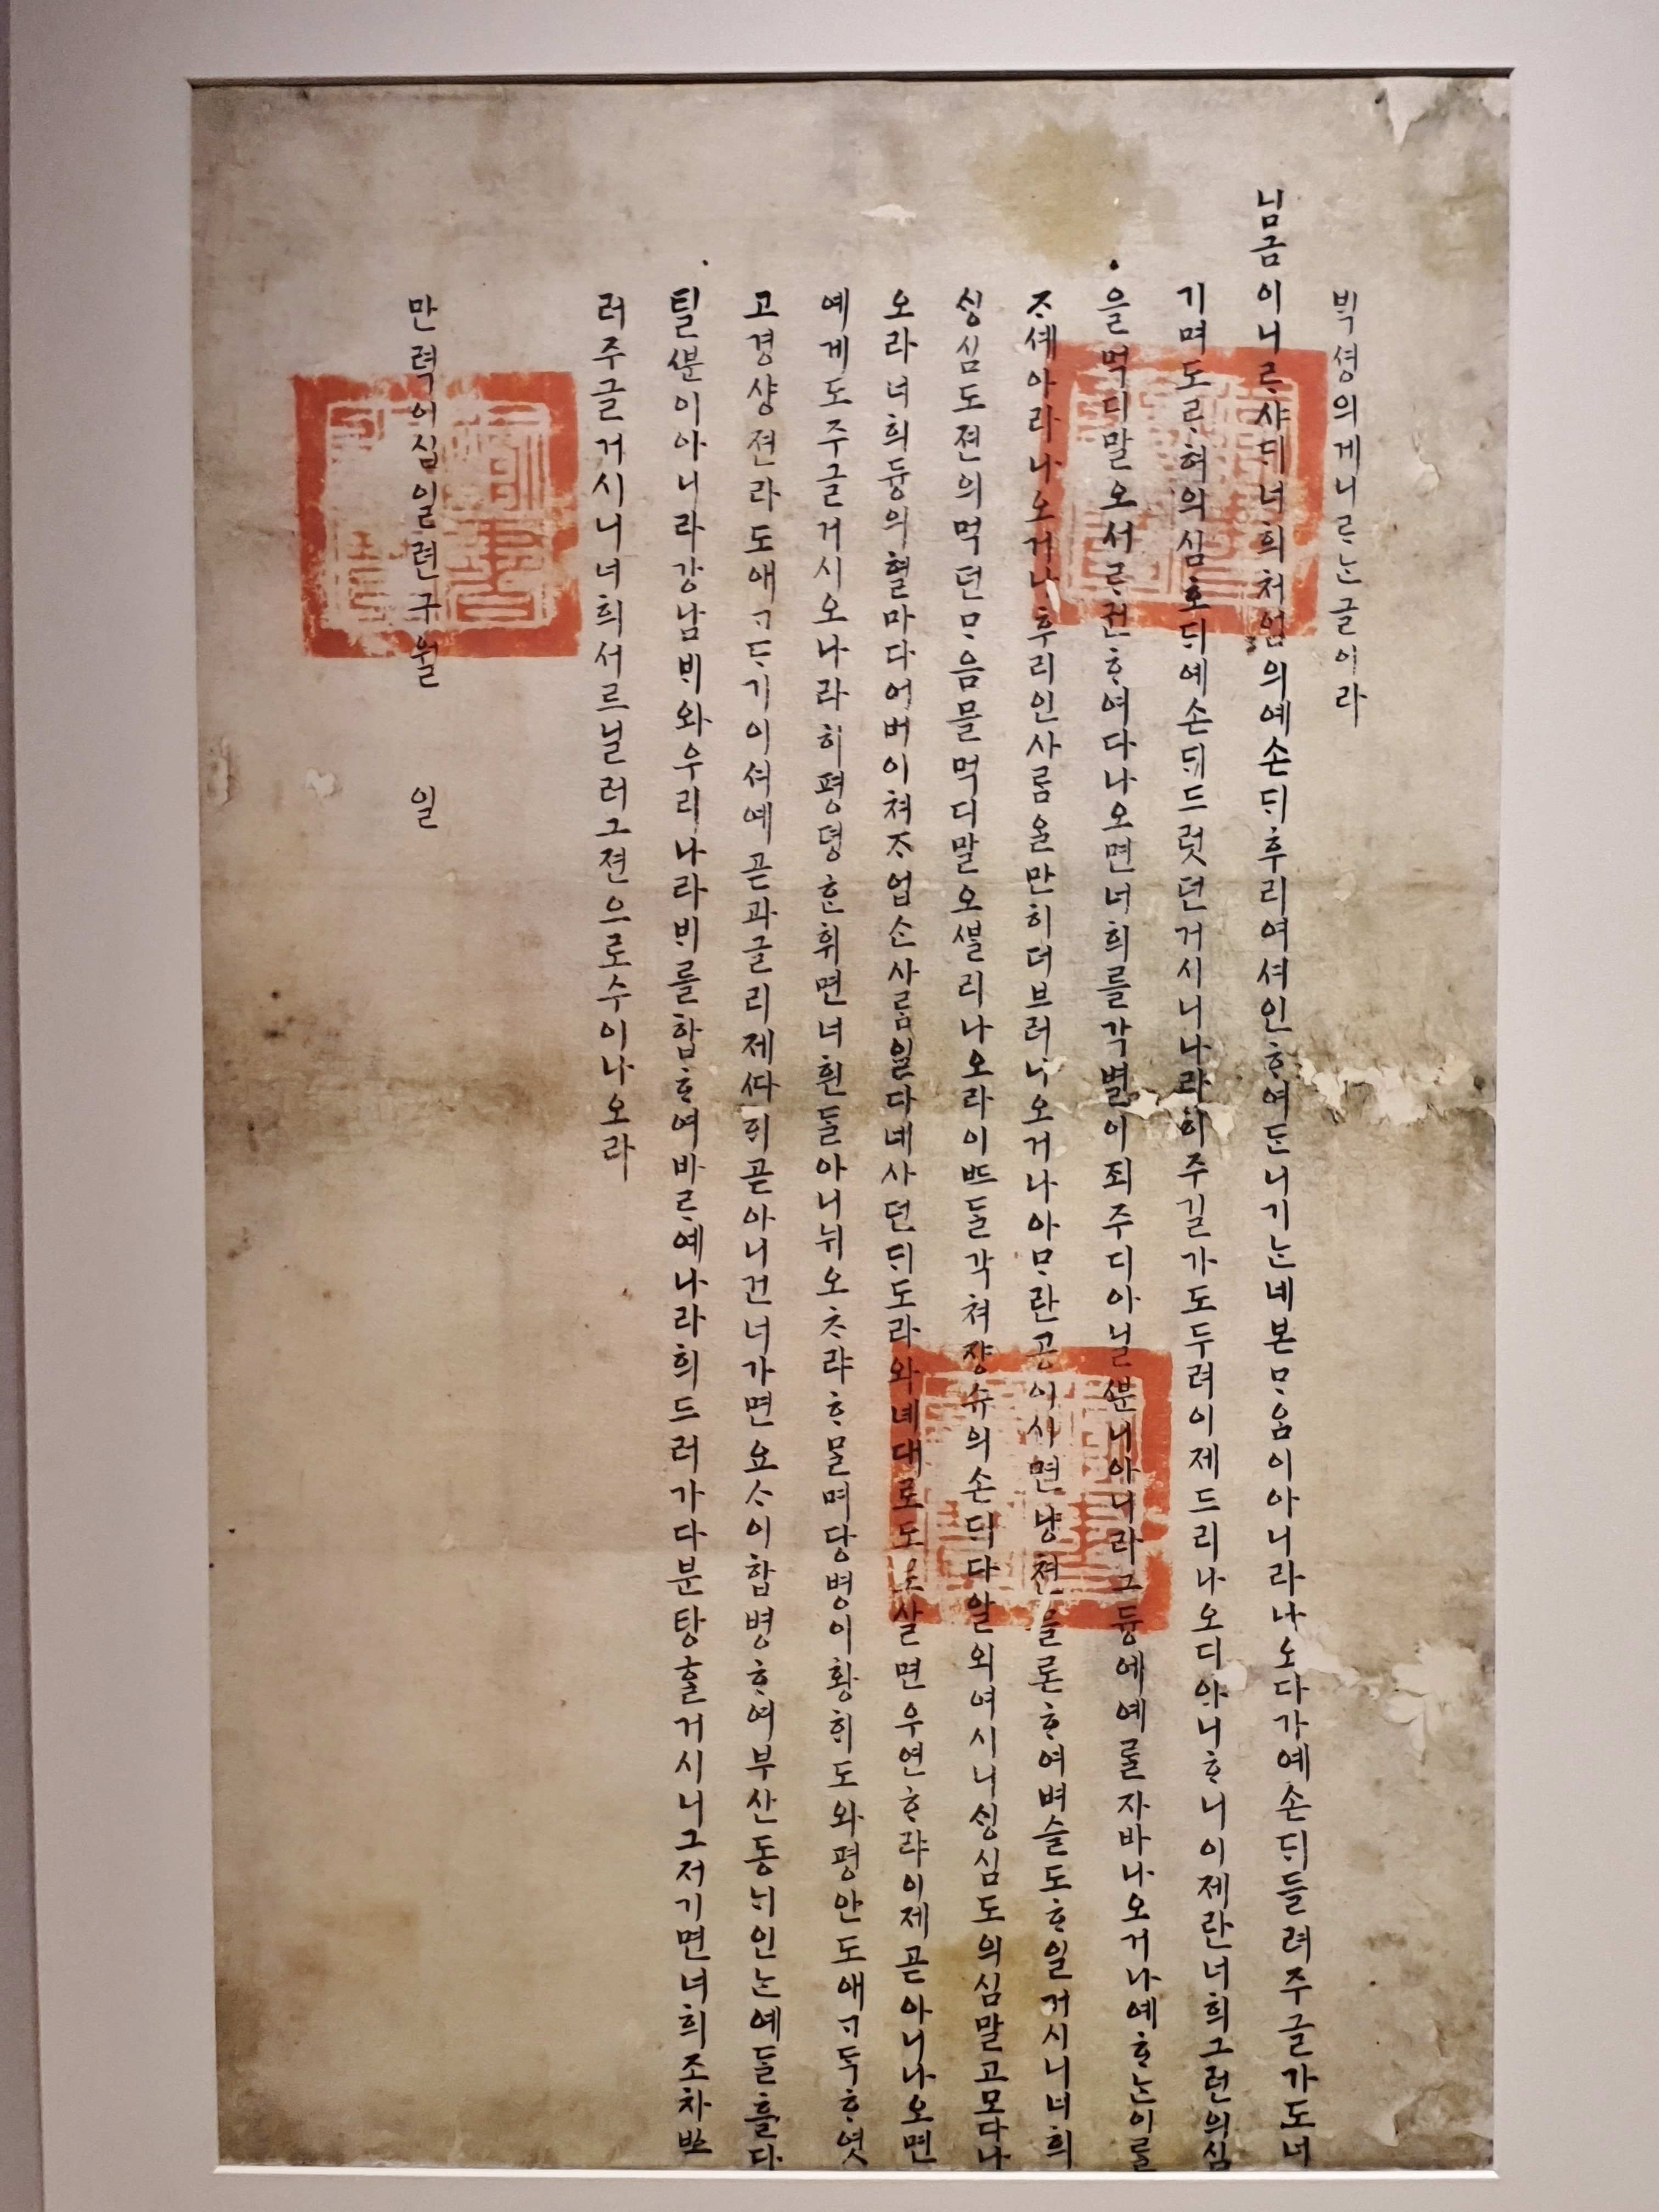 ᄇᆡᆨ셩의게니ᄅᆞᄂᆞᆫ글이라
님금이니ᄅᆞ샤ᄃᆡ너희처엄의예손ᄃᆡ후리여셔인ᄒᆞ여ᄃᆞᆫ니기ᄂᆞᆫ네본ᄆᆞ음이아니라나오다가예손ᄃᆡ들려주글가도너
기며도ᄅᆞ혀의심ᄒᆞ되예손ᄃᆡ드럿던거시니나라히주길가도두려이제드리나오디아니ᄒᆞ니이제란너희그런의심
을먹디말오서ᄅᆞ권ᄒᆞ여다나오면너희를각별이죄주디아닐ᄲᅮᆫ니아니라그듕에예ᄅᆞᆯ자바나오거나예ᄒᆞᄂᆞᆫ이ᄅᆞᆯ
ᄌᆞ셰아라나오거나후리인사ᄅᆞᆷ을만히더브러나오거나아ᄆᆞ란공이사면냥쳔믈론ᄒᆞ여벼슬도ᄒᆞ일거시니너희
ᄉᆡᆼ심도젼의먹던ᄆᆞ음믈먹디말오ᄲᆞᆯ리나오라이ᄠᅳ들각쳐쟝슈의손ᄃᆡ다알외여시니ᄉᆡᆼ심도의심말고모다나
오라너희듕의혈마다어버이쳐ᄌᆞ업ᄉᆞᆫ사ᄅᆞᆷ일다녜사던ᄃᆡ도라와녜대로도로살면우연ᄒᆞ랴이제곧아니나오면
예게도주글거시오나라히평뎡ᄒᆞᆫ휘면너흰들아니뉘오ᄎᆞ랴ᄒᆞᄆᆞᆯ며당병이황ᄒᆡ도와평안도애ᄀᆞᄃᆞᆨᄒᆞ엿
고경샹젼라도애ᄀᆞᄃᆞ기이셔예곧과글리제ᄯᅡᄒᆡ곧아니건너가면요ᄉᆞ이합병ᄒᆞ여부산동ᄂᆡ인ᄂᆞᆫ예ᄃᆞᆯ흘다
틸ᄲᅮᆫ이아니라강남ᄇᆡ와우리나라ᄇᆡ를합ᄒᆞ여바ᄅᆞ예나라ᄒᆡ드러가다분탕ᄒᆞᆯ거시니그저기면너희조차ᄡᅳ
러주글거시니너희서르닐러그젼으로수이나오라
만력이십일련구월 일